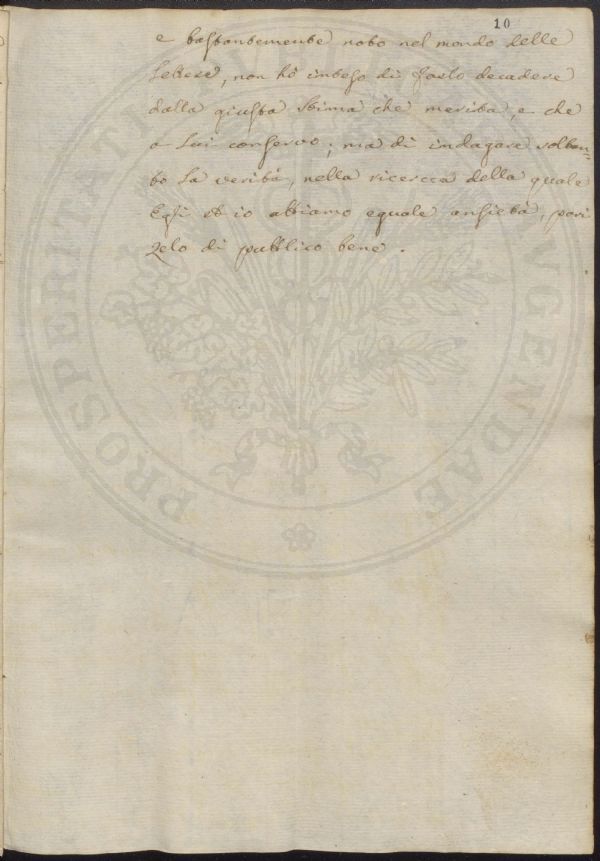 10
e bastantemente noto nel mondo delle
Lettere, non hò inteso di farlo decadere
dalla giusta stima che merita, e che
a Lui conservo; ma di indagare soltan-
to la verità, nella ricerca della quale
Egli et io abbiamo eguale ansietà, pari
zelo di pubblico bene.
PROSPERITATI PUBLICAE AUGENDAE